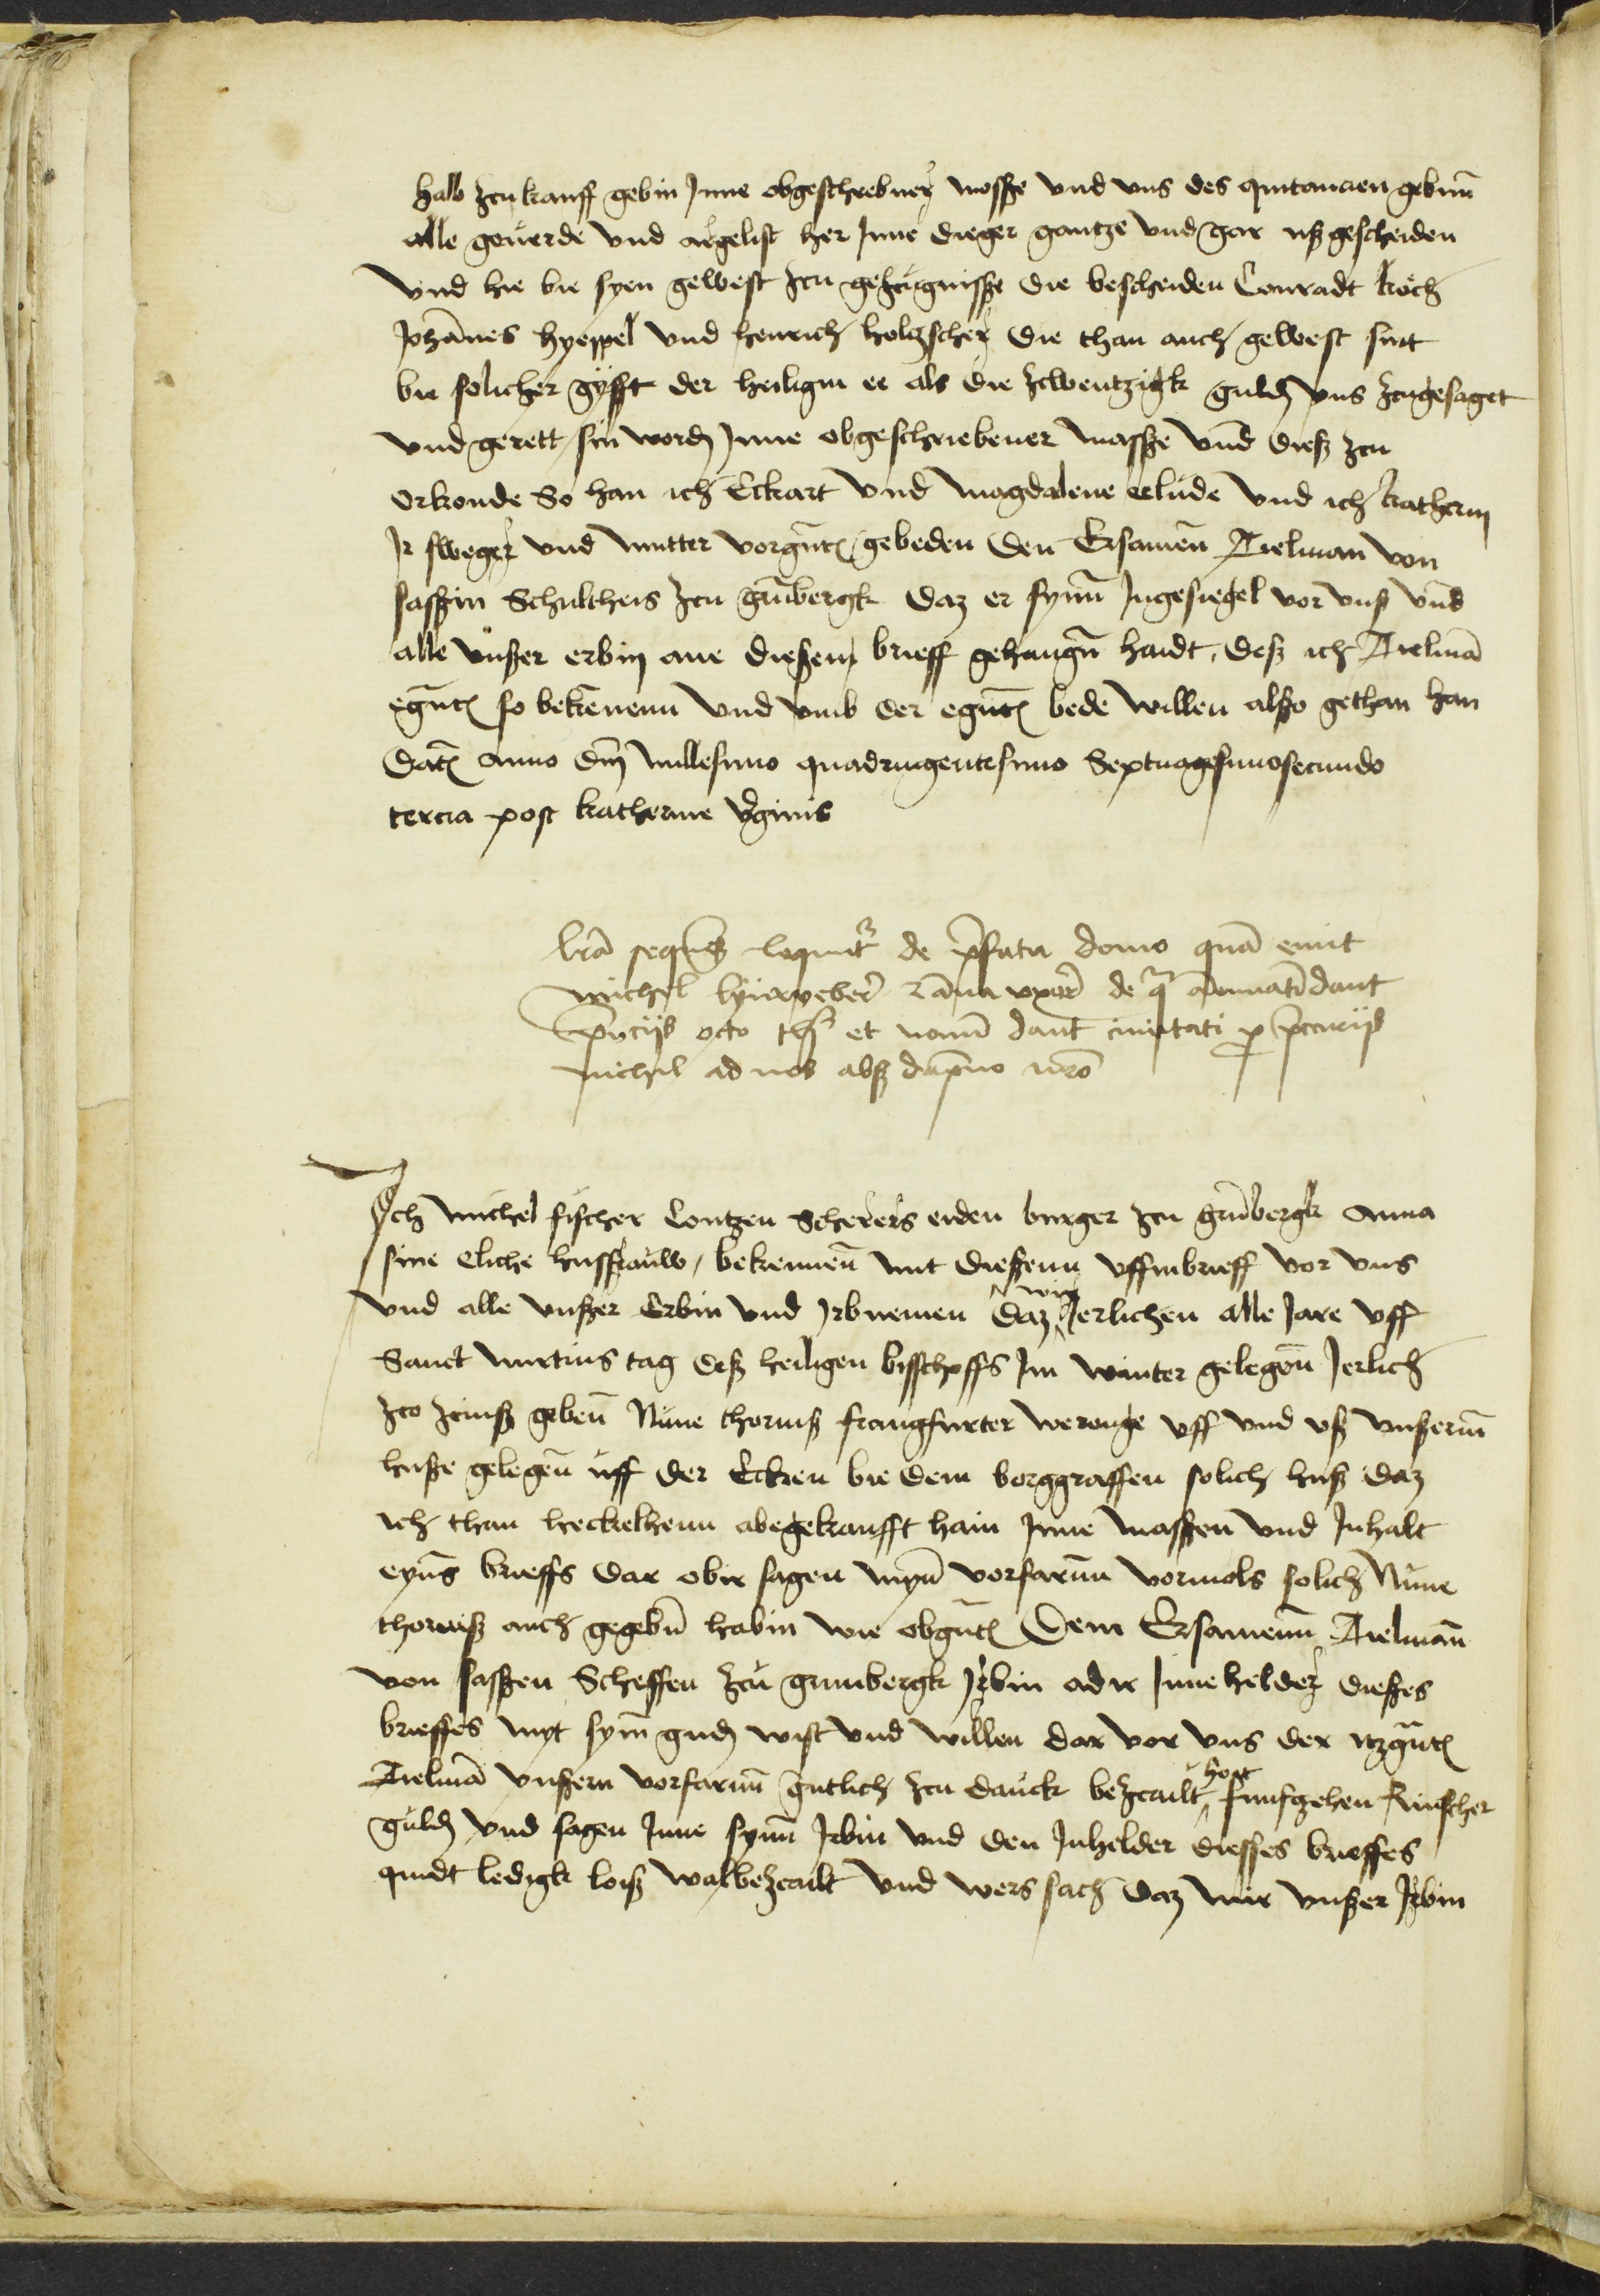 halb zcu kauff gebin Inne obgeschrebner mosße vnd vns des quitancien gebinn̄
alle geuerde vnd argelist her Inne dieger gantze vnd gar vßgescheiden
Vnd hie bie syen gewest zcu gezugnisße die bescheiden Conradt koch
Joha̅nes hyeppel vnd henrich holczscher die than auch gewest sint
bie solicher gyfft der heiligin ee als die zcwentzigk guld vns zcugesaget
vnd gerett sin word Inne obgeschriebener masße vnd dieß zcu
Orkonde So han ich Eckart vnd magdalene elude vnd ich katherin
Ir sweger vnd mutter vorgnt̄ gebeden den Ersamen̄ Tielman von
sasßin Schultheis zcu grūbergk daz er synn̄ Ingesiegel vor vnß vnd
alle vnßer erbin ane dießem brieff gehangn̄ haidt, deß ich Tielma̅
egn̄t so beken̄enn vnd vmb der egn̄t bede willen alßo gethan han
Dat̄ anno dn̄i millesimo quadringentesimo Septuagesimosecundo
tercia post katherine v'ginis
lr̅a sequēs loquit' de p̅fata domo qua̅ emit
michel lyⁿweber 2 a̅nna vxor' de q̅ a̅nuati̅ dant
octo tⁿß et nonu̅ dant ciuitati p
nichil ad nos absq dapno nr̅o
Ich michel fischer Contzen Scherers eiden burger zcu grūbergk Anna
sine eliche hußfrauw, bekennen̄ mit dießenn vffinbrieff vor vns
vnd alle vnßer Erbin vnd Irbnemen daz wir Ierlichen alle Jare vff
Sanct mirtins tag deß heiligen bisschoffs Im winter gelegen̄ Jerlich
zco zcinß geben̄ Nune thorniß frangfurter werunge vff vnd vß vnßerm̄
huße gelegen̄ vff der Ecken bie dem borggraffen solich huß daz
ich than heckelhenn abegekaufft hain Inne masßen vnd Inhalt
eyns brieffs dar obir sagen myn̄ vorfarnn̄ vormols solich Nune
thorniß auch gegebn̄ habin wie obgn̄t Dem Ersamenn̄ Tielman̄
von sasßen Scheffen zcu grunbergk Irbin adir Inne helder dießes
brieffes myt sym̄ gud wist vnd willen dar vor vns der itzgn̄t
Tielma̅ vnßern vorfarnn̄ gutlich zcu danck bezcailt hoit funfzehen Rinscher
guld vnd sagen Inne synn̄ Irbin vnd den Inhelder diesses brieffes
quidt ledigk loiß walbezcailt vnd wers sach daz wir vnßer Irbin